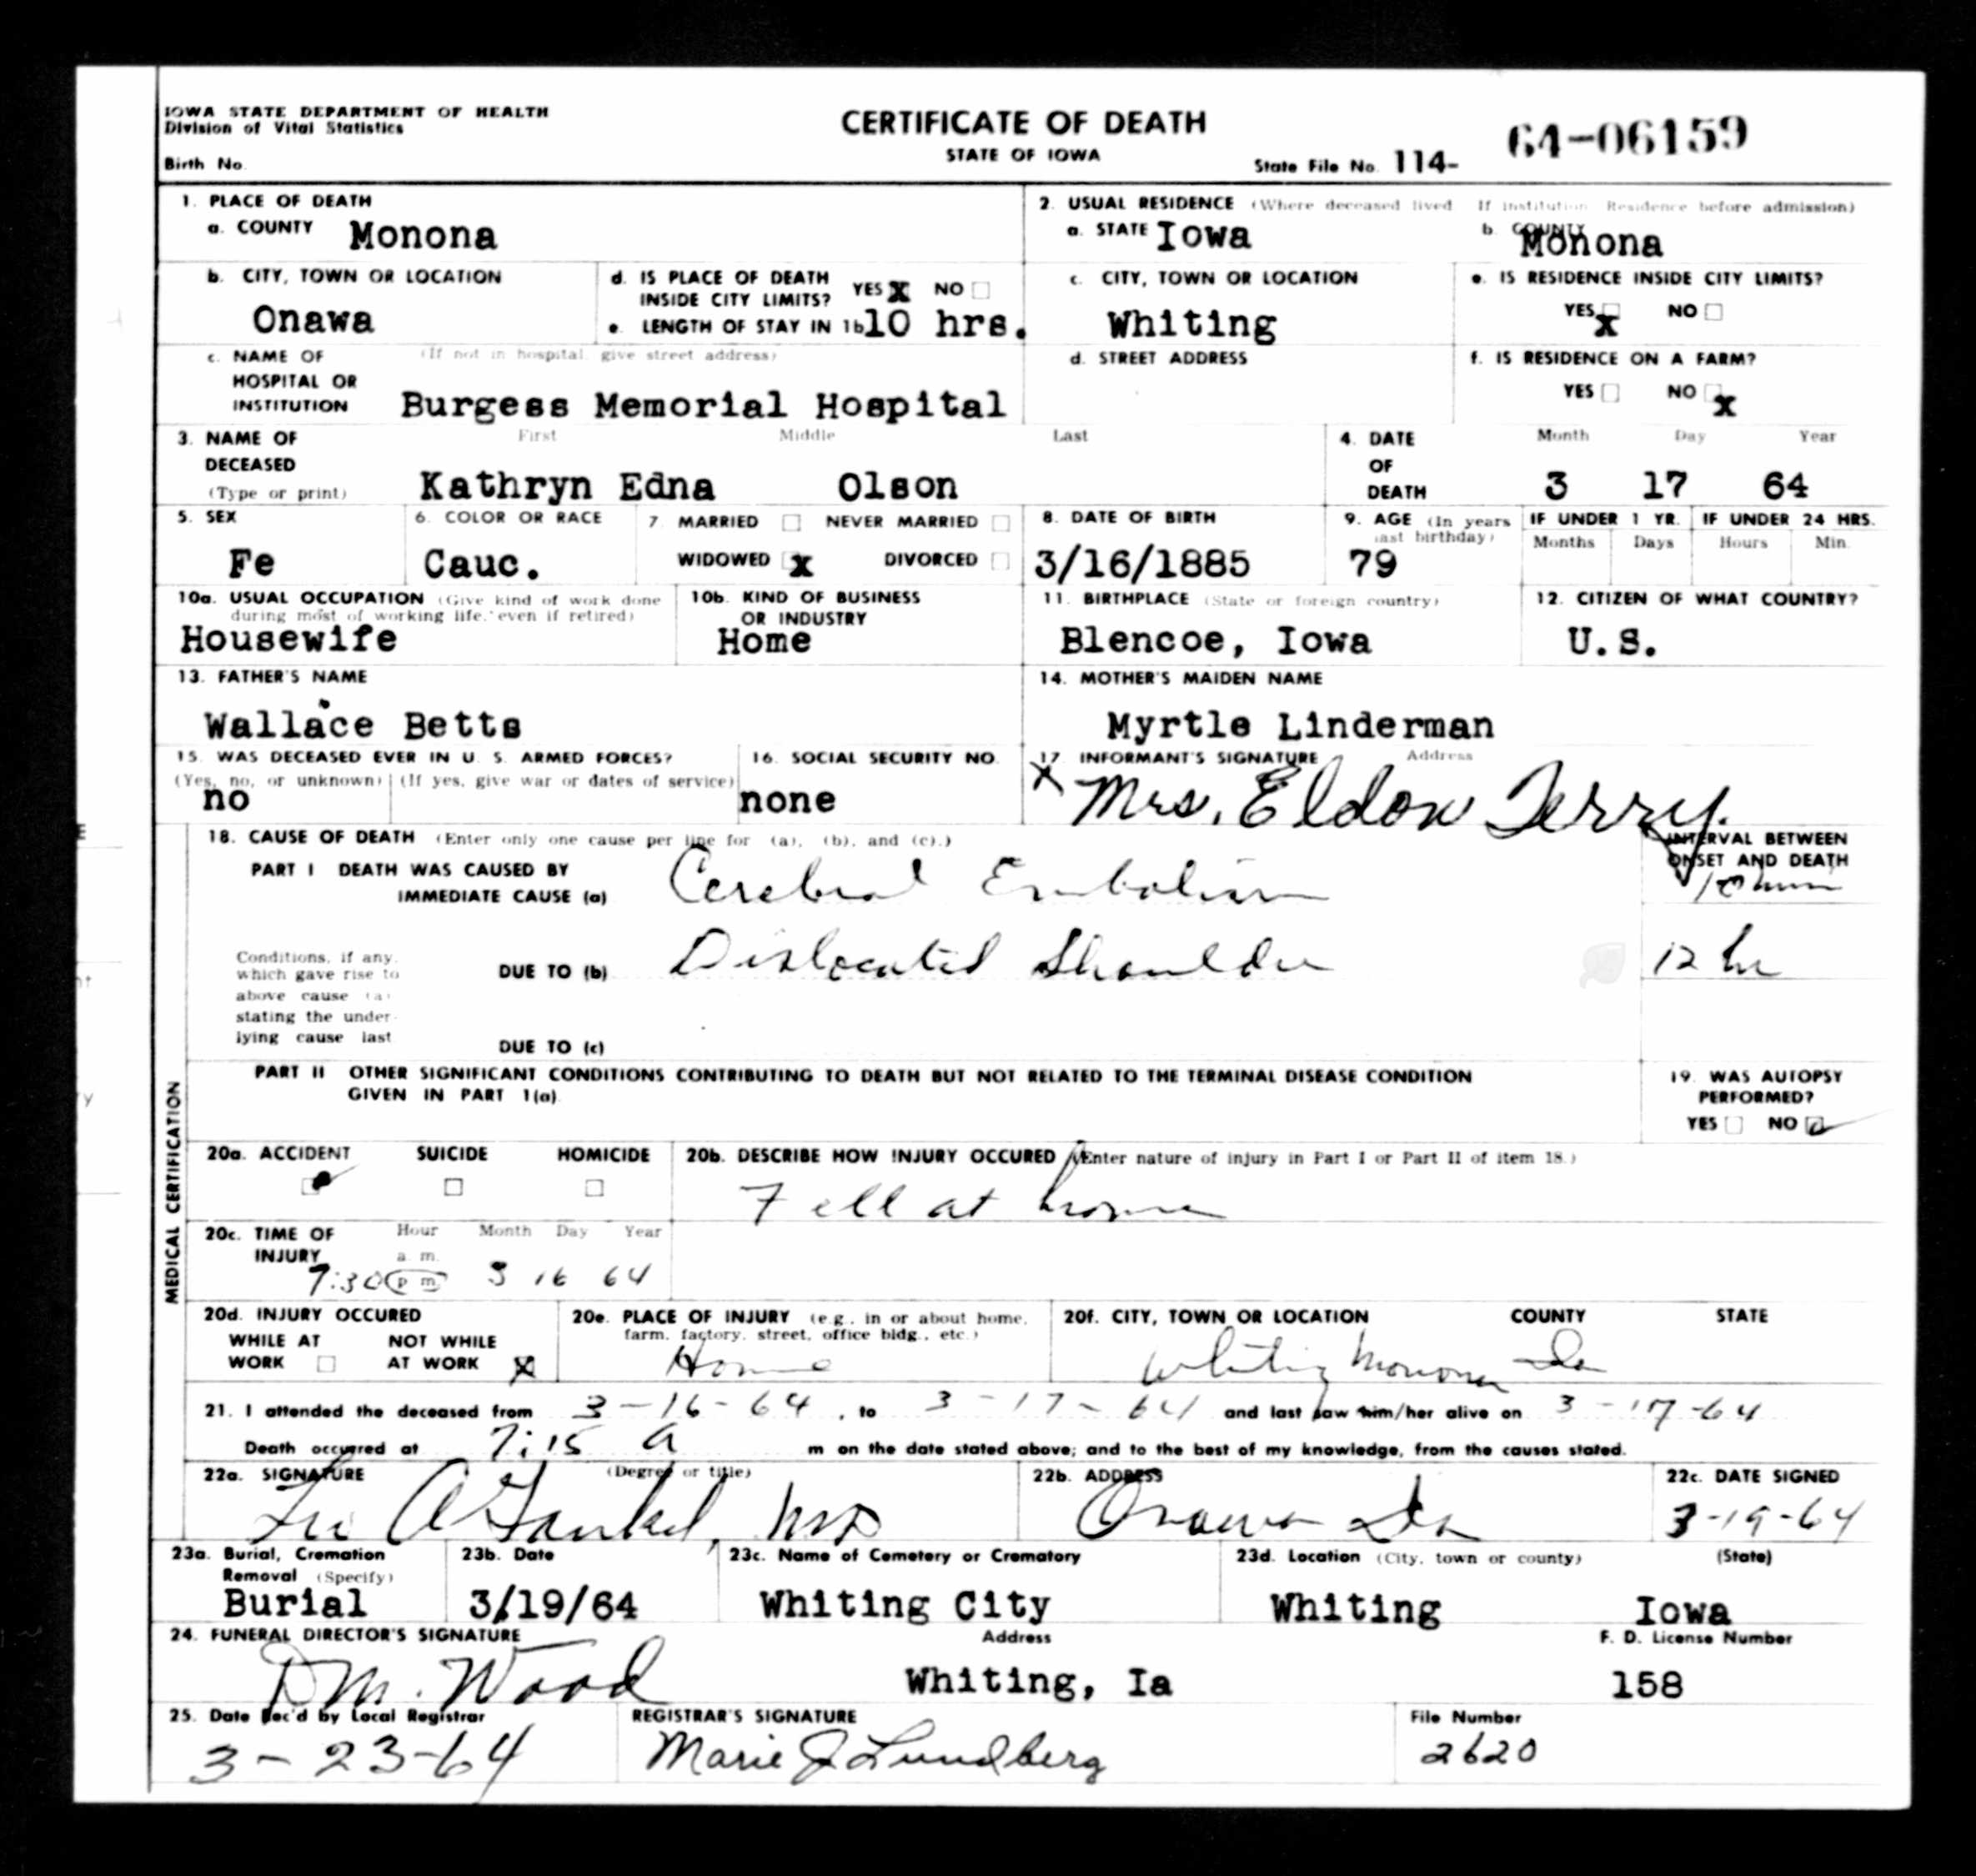 IOWA STATE DEPARTMENT OF HEALTH
Division of Vital Statistics
Birth No.
CERTIFICATE OF DEATH
STATE OF IOWA
State File No. 114- 64-06159
1. PLACE OF DEATH
a. COUNTY Monona
2. USUAL RESIDENCE (Where deceased lived If institution Residence before admission)
a. STATE Iowa b. COUNTY Monona
b. CITY, TOWN OR LOCATION
Onawa
d. IS PLACE OF DEATH INSIDE CITY LIMITS? YES x NO
e. LENGTH OF STAY IN 1b 10 hrs.
c. CITY, TOWN OR LOCATION
Whiting
e. IS RESIDENCE INSIDE CITY LIMITS?
YES x NO
c. NAME OF HOSPITAL OR INSTITUTION (If not in hospital, give street address)
Burgess Memorial Hospital
d. STREET ADDRESS
f. IS RESIDENCE ON A FARM?
YES NO x
3. NAME OF DECEASED (Type or print) First Middle Last
Kathryn Edna Olson
4. DATE OF DEATH Month Day Year
3 17 64
5. SEX
Fe
6. COLOR OR RACE
Cauc.
7. MARRIED NEVER MARRIED
WIDOWED x DIVORCED
8. DATE OF BIRTH
3/16/1885
9. AGE (In years last birthday)
79
IF UNDER 1 YR. Months Days
IF UNDER 24 HRS. Hours Min.
10a. USUAL OCCUPATION (Give kind of work done during most of working life, even if retired)
Housewife
10b. KIND OF BUSINESS OR INDUSTRY
Home
11. BIRTHPLACE (State or foreign country)
Blencoe, Iowa
12. CITIZEN OF WHAT COUNTRY?
U.S.
13. FATHER'S NAME
Wallace Betts
14. MOTHER'S MAIDEN NAME
Myrtle Linderman
15. WAS DECEASED EVER IN U. S. ARMED FORCES?
(Yes, no, or unknown) (If yes, give war or dates of service)
no
16. SOCIAL SECURITY NO.
none
17. INFORMANT'S SIGNATURE Address
x Mrs. Eldon Terry
18. CAUSE OF DEATH (Enter only one cause per line for (a), (b), and (c).)
INTERVAL BETWEEN ONSET AND DEATH
PART I DEATH WAS CAUSED BY
IMMEDIATE CAUSE (a) Cerebral Embolism 10 min
Conditions, if any, which gave rise to above cause (a) stating the underlying cause last
DUE TO (b) Dislocated Shoulder 12 hr
DUE TO (c)
PART II OTHER SIGNIFICANT CONDITIONS CONTRIBUTING TO DEATH BUT NOT RELATED TO THE TERMINAL DISEASE CONDITION
GIVEN IN PART I(a)
19. WAS AUTOPSY PERFORMED?
YES NO
MEDICAL CERTIFICATION
20a. ACCIDENT SUICIDE HOMICIDE
20b. DESCRIBE HOW INJURY OCCURED (Enter nature of injury in Part I or Part II of item 18.)
Fell at home
20c. TIME OF INJURY Hour Month Day Year
a. m.
7:30 p m 3 16 64
20d. INJURY OCCURED
WHILE AT WORK NOT WHILE AT WORK x
20e. PLACE OF INJURY (e.g., in or about home, farm, factory, street, office bldg., etc.)
Home
20f. CITY, TOWN OR LOCATION COUNTY STATE
Whiting Monona Ia
21. I attended the deceased from 3-16-64, to 3-17-64 and last saw him/her alive on 3-17-64
Death occurred at 7:15 A m on the date stated above; and to the best of my knowledge, from the causes stated.
22a. SIGNATURE (Degree or title)
A MD
22b. ADDRESS
Onawa Ia
22c. DATE SIGNED
3-19-64
23a. Burial, Cremation Removal (Specify)
Burial
23b. Date
3/19/64
23c. Name of Cemetery or Crematory
Whiting City
23d. Location (City, town or county) (State)
Whiting Iowa
24. FUNERAL DIRECTOR'S SIGNATURE Address F. D. License Number
D M. Wood Whiting, Ia 158
25. Date Rec'd by Local Registrar
3-23-64
REGISTRAR'S SIGNATURE
Marie J Lundberg
File Number
2620